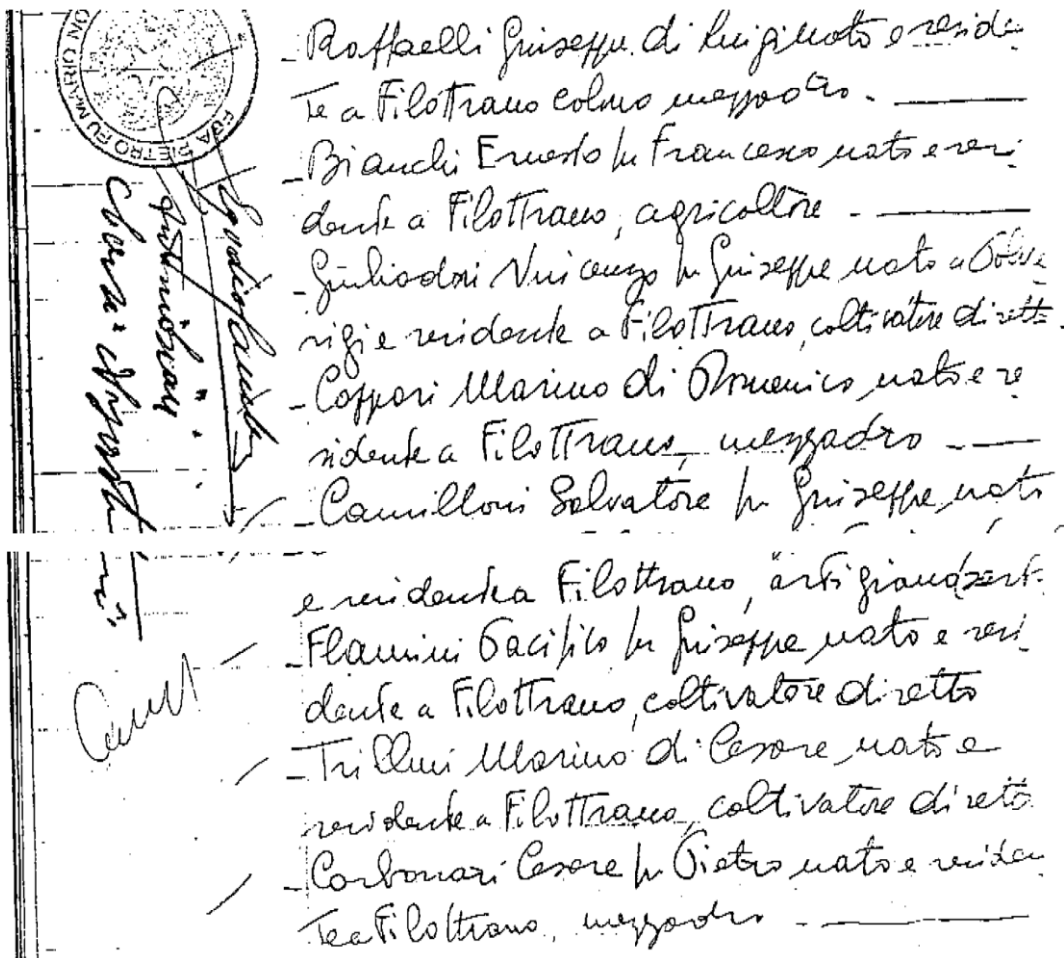 - Raffaelli Giuseppe di Luigi nato e residen
te a Filottrano colono mezzadro. -
- Bianchi Ernesto fu Francesco nato e resi
dente a Filottrano, agricoltore -
- Giuliodori Vincenzo fu Giuseppe nato a Polve
rigi e residente a Filottrano, coltivatore diretto
- Coppari Marino di Domenico, nato e re
sidente a Filottrano, mezzadro -
- Camilloni Salvatore fu Giuseppe, nato
e residente a Filottrano, artigiano
- Flamini Pacifico fu Giuseppe nato e resi
dente a Filottrano, coltivatore diretto
- Trillini Marino di Cesare, nato e
residente a Filottrano, coltivatore diretto
- Carbonari Cesare fu Pietro nato e residen
te a Filottrano, mezzadro -
PIETRO FU MARIO NO